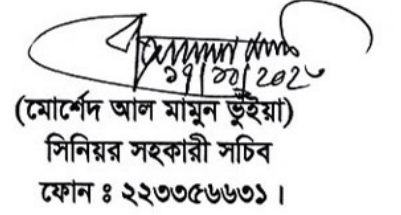 (মোর্শেদ আল মামুন ভুঁইয়া)
সিনিয়র সহকারী সচিব
ফোন ঃ ২২৩৩৫৬৬৩১ ।